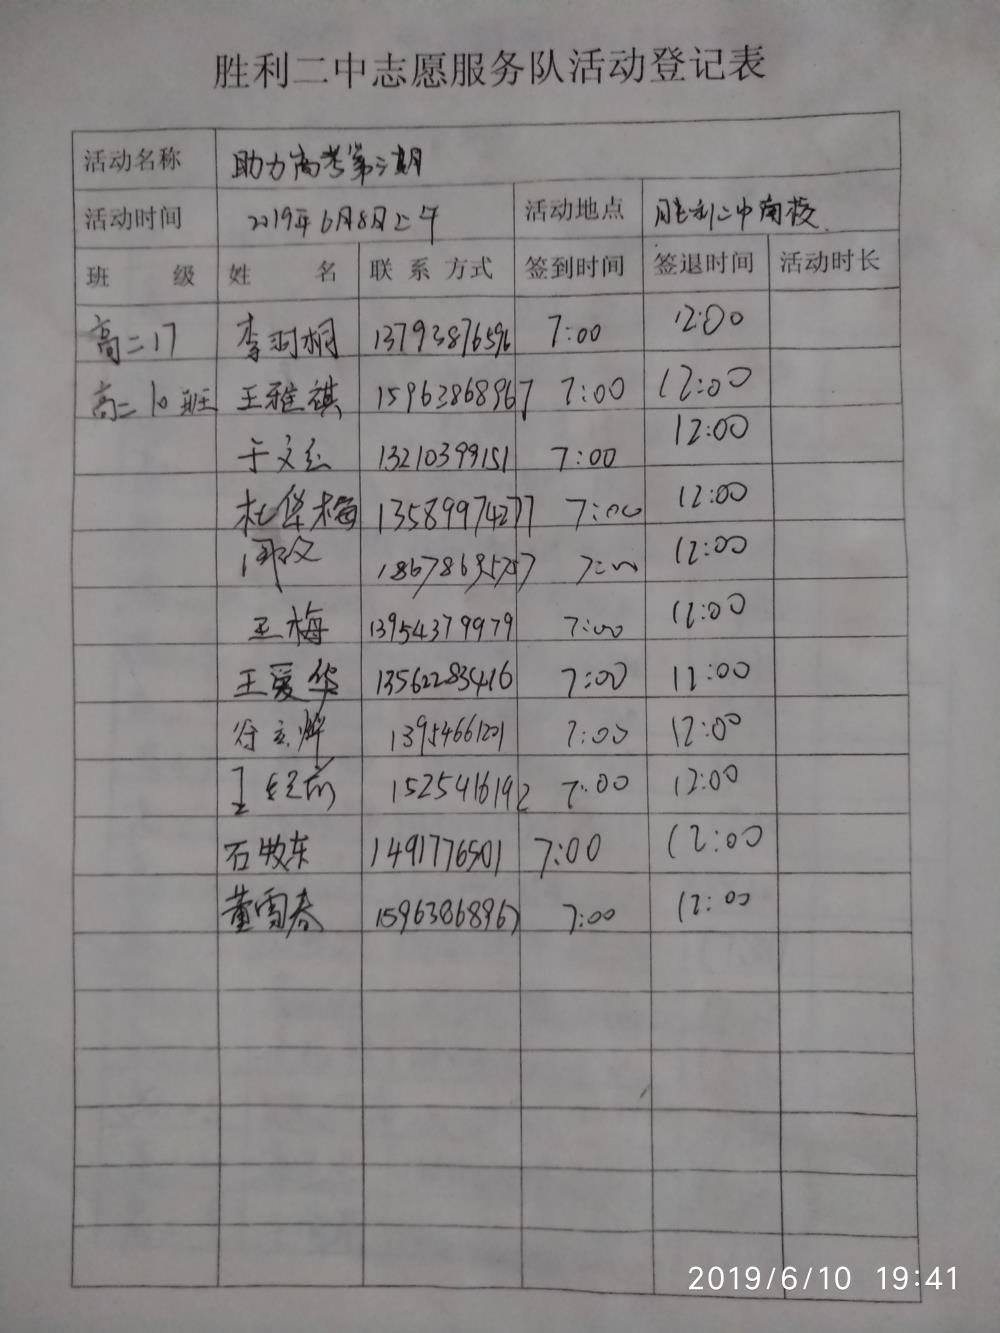 胜利二中志愿服务队活动登记表
活动名称 助力高考第二期
活动时间 2019年6月8日上午 活动地点 胜利二中南校
班 级 姓 名 联 系 方式 签到时间 签退时间 活动时长
高二17 李羽桐 13793876596 7:00 12:00
高二10班 王雅祺 15963868967 7:00 12:00
于文 13210399151 7:00 12:00
杜华梅 13589974277 7:00 12:00
18678695757 7:00 12:00
王梅 13954379979 7:00 12:00
王爱华 13562283416 7:00 12:00
13954661201 7:00 12:00
王 1525416192 7:00 12:00
石牧东 1491776501 7:00 12:00
董雪春 15963868967 7:00 12:00
2019/6/10 19:41